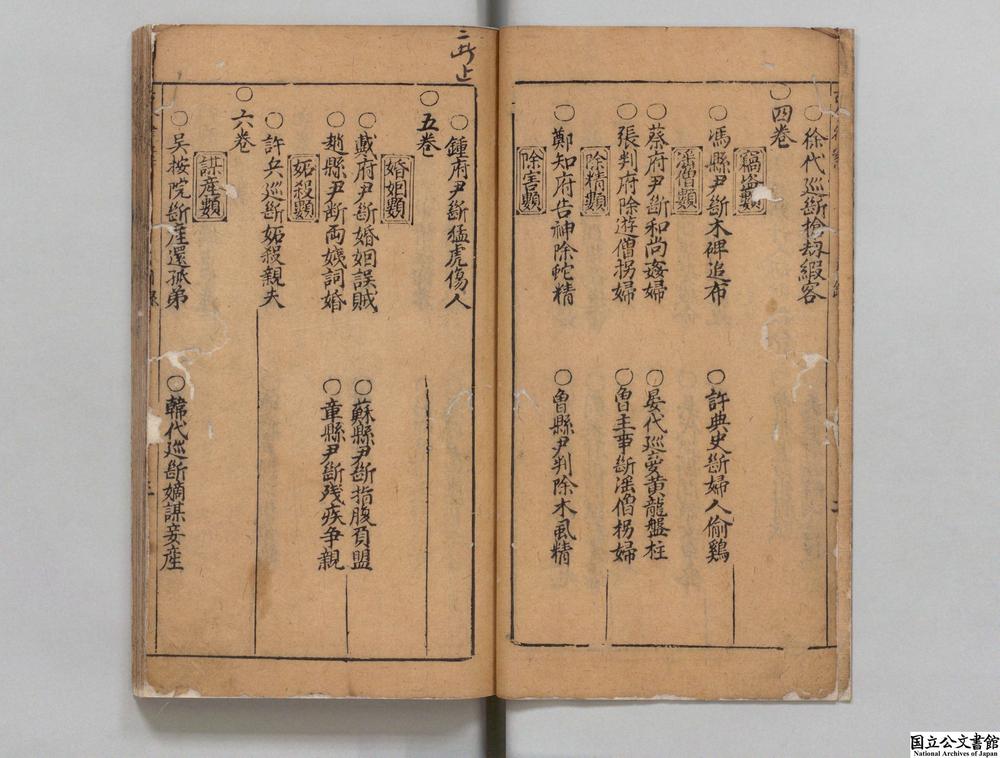 ○徐代巡斷搶刼緞客
○四卷
竊盜類
○馮縣尹斷木碑追布 ○許典史斷婦人偷鷄
淫僧類
○蔡府尹斷和尚姦婦 ○晏代巡夢黄龍盤柱
○張判府除游僧拐婦 ○曾主事斷淫僧拐婦
除精類
○鄭知府告神除蛇精 ○魯縣尹判除木風精
除害類
○鍾府尹斷猛虎傷人
○五卷
婚姻類
○戴府尹斷婚姻誤賊 ○蘇縣尹斷指腹負盟
○趙縣尹斷両姨詞婚 ○童縣尹斷残疾争親
妬殺類
○許兵巡斷妬殺親夫
○六卷
謀產類
○吳按院斷產還孤弟 ○韓代巡斷嫡謀妾產
国立公文書館
National Archives of Japan